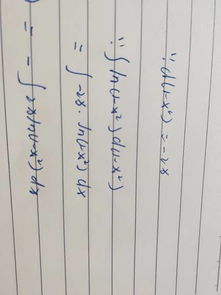 ∵ d(1-x²) = -2x
∵ ∫ ln(1-x²) d(1-x²)
= ∫ -2x · ln(1-x²) dx
= - ∫ 2x ln(1-x²) dx